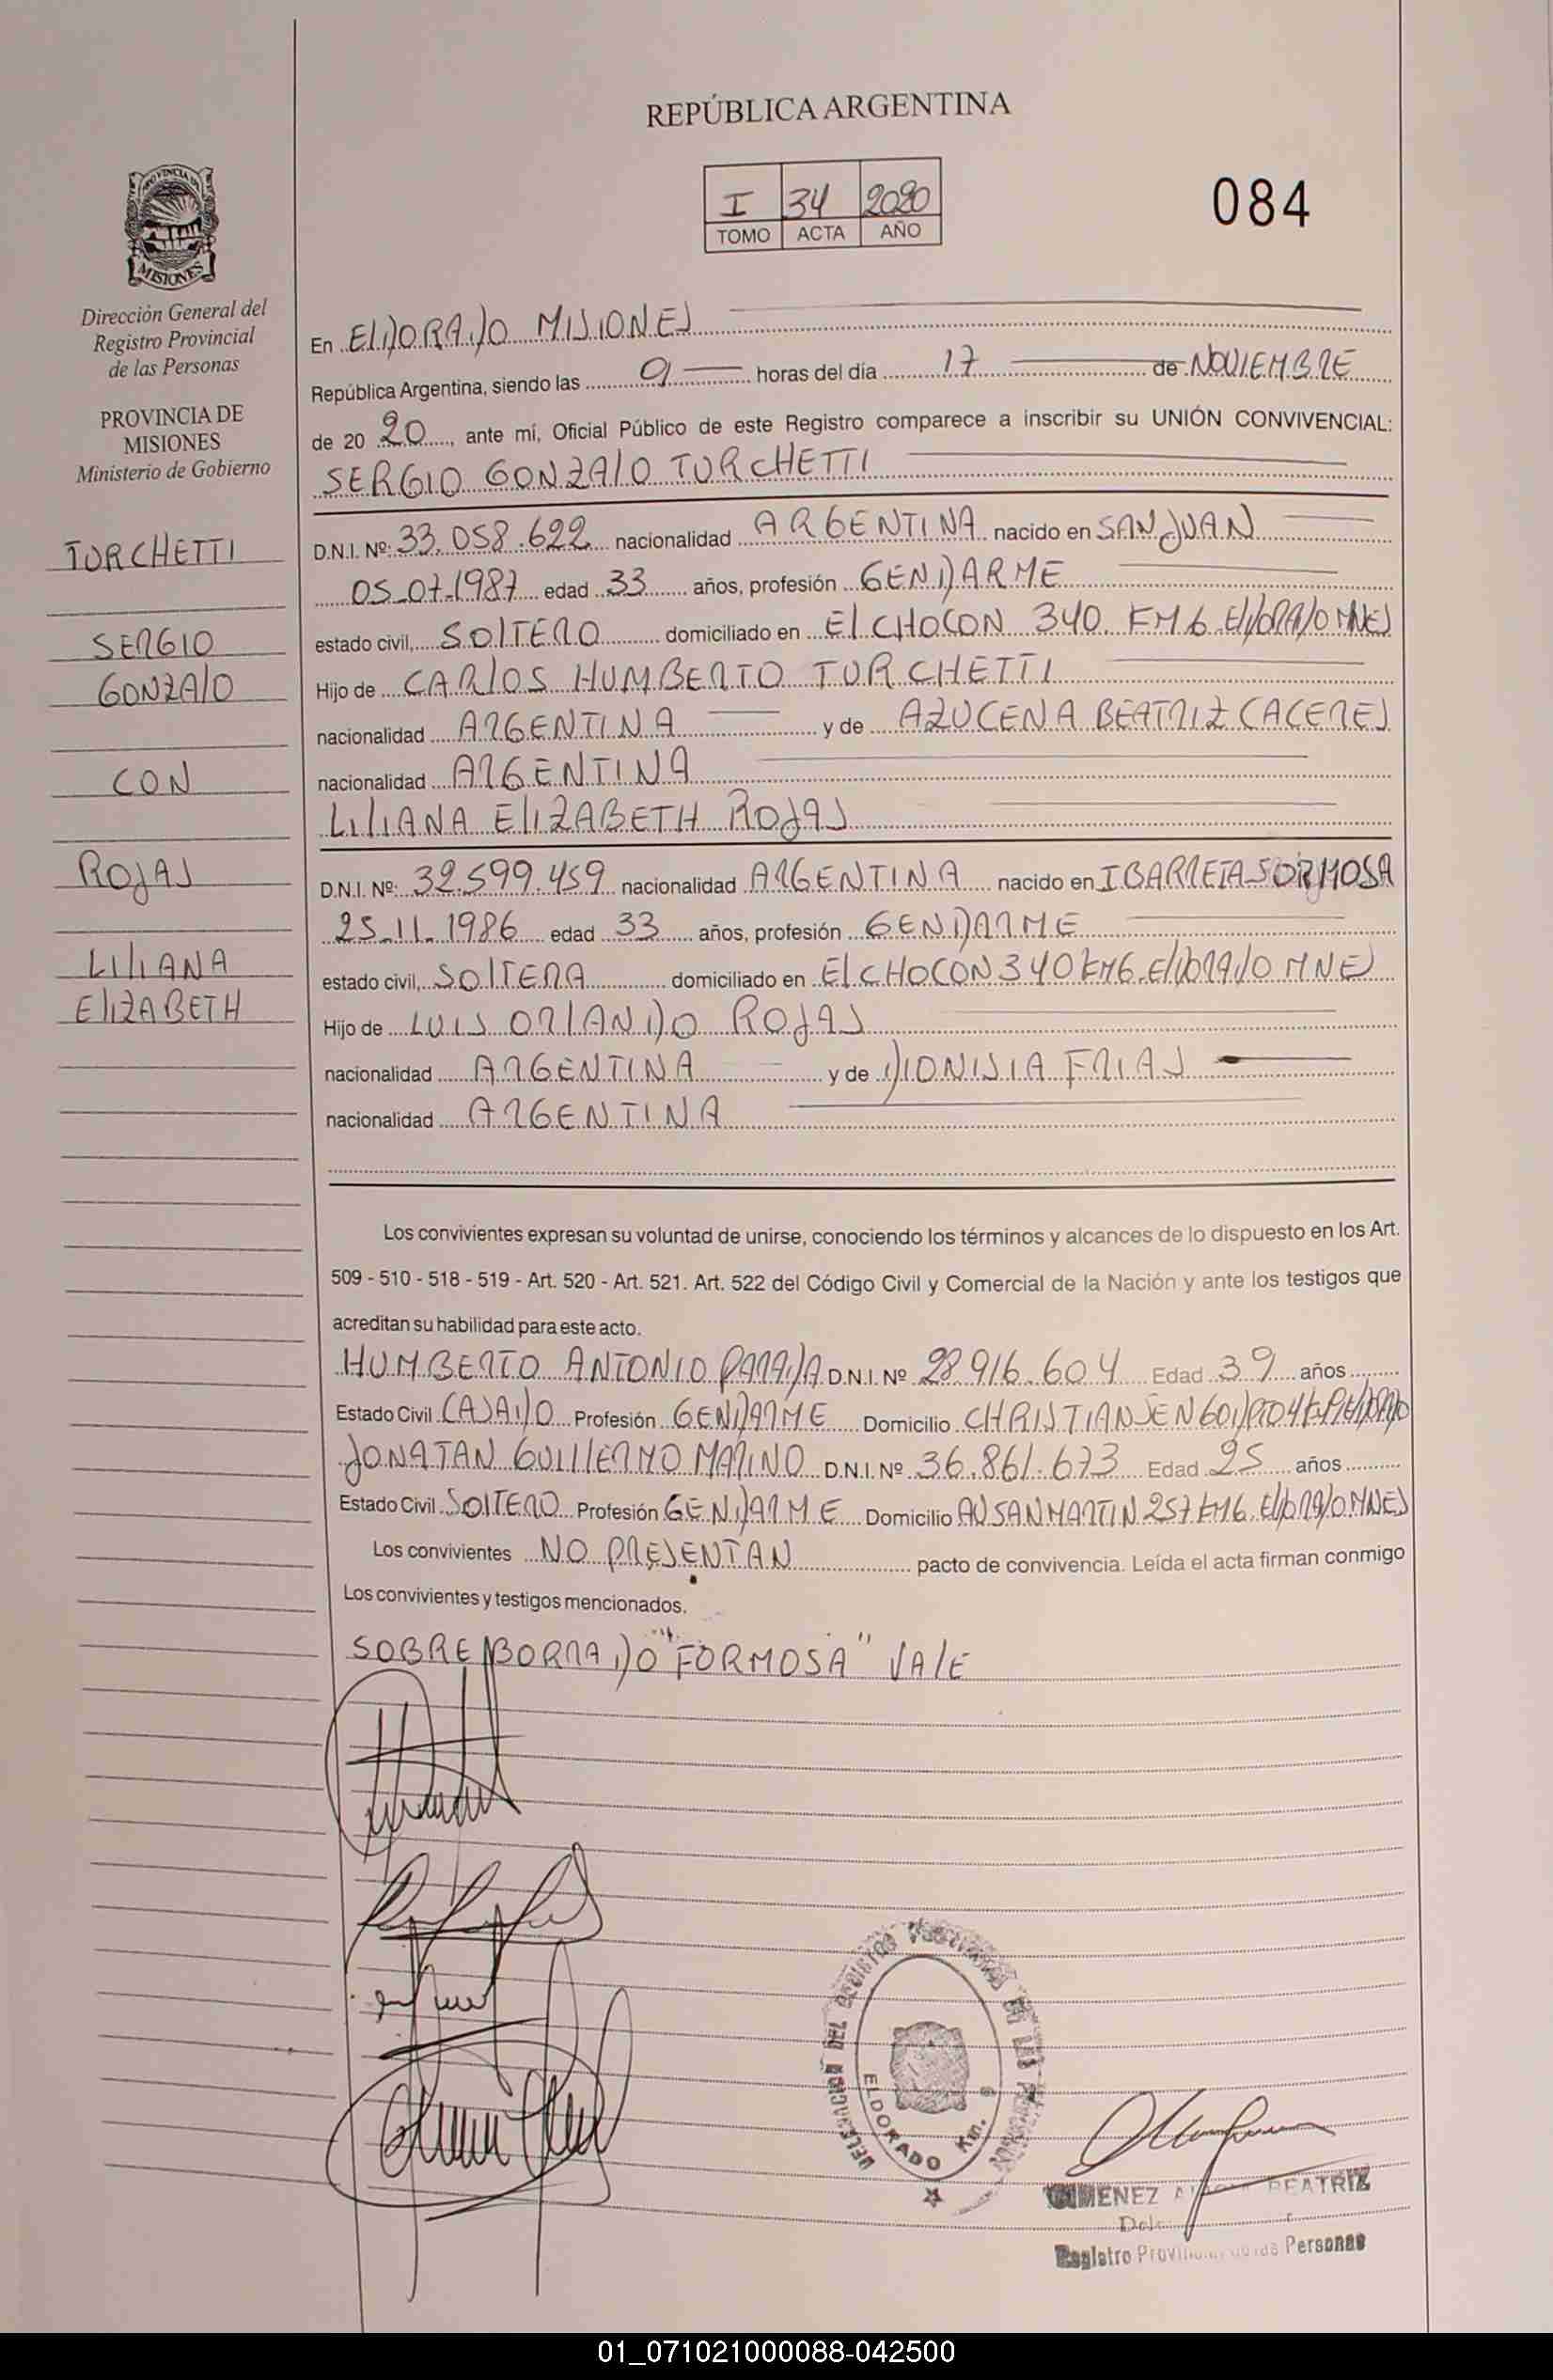 REPÚBLICA ARGENTINA
I 34 2020
TOMO ACTA AÑO
084
PROVINCIA DE
MISIONES
Dirección General del
Registro Provincial
de las Personas
PROVINCIA DE
MISIONES
Ministerio de Gobierno
TURCHETTI
SERGIO
GONZALO
CON
ROJAS
LILIANA
ELIZABETH
En ELDORADO MISIONES
República Argentina, siendo las 9 horas del día 17 de NOVIEMBRE
de 20 20, ante mí, Oficial Público de este Registro comparece a inscribir su UNIÓN CONVIVENCIAL:
SERGIO GONZALO TURCHETTI
D.N.I. Nº: 33.058.622 nacionalidad ARGENTINA nacido en SAN JUAN
05-07-1987 edad 33 años, profesión GENDARME
estado civil, SOLTERO domiciliado en El CHOCON 340 KM 6 ELDORADO MNES
Hijo de CARLOS HUMBERTO TURCHETTI
nacionalidad ARGENTINA y de AZUCENA BEATRIZ CACERES
nacionalidad ARGENTINA
LILIANA ELIZABETH ROJAS
D.N.I. Nº: 32.599.459 nacionalidad ARGENTINA nacido en IBARRETA FORMOSA
25-11-1986 edad 33 años, profesión GENDARME
estado civil, SOLTERA domiciliado en El CHOCON 340 KM6 ELDORADO MNES
Hijo de LUIS ORLANDO ROJAS
nacionalidad ARGENTINA y de DIONISIA FRIAS
nacionalidad ARGENTINA
Los convivientes expresan su voluntad de unirse, conociendo los términos y alcances de lo dispuesto en los Art.
509 - 510 - 518 - 519 - Art. 520 - Art. 521. Art. 522 del Código Civil y Comercial de la Nación y ante los testigos que
acreditan su habilidad para este acto.
HUMBERTO ANTONIO PARADA D.N.I. Nº 28.916.604 Edad 39 años
Estado Civil CASADO Profesión GENDARME Domicilio CHRISTIANSEN 601
JONATAN GUILLERMO MARINO D.N.I. Nº 36.861.673 Edad 25 años
Estado Civil SOLTERO Profesión GENDARME Domicilio AV SAN MARTIN 257 KM6 ELDORADO MNES
Los convivientes NO PRESENTAN pacto de convivencia. Leída el acta firman conmigo
Los convivientes y testigos mencionados.
SOBREBORRADO "FORMOSA" VALE
DELEGACION DEL REGISTRO PROVINCIAL DE LAS PERSONAS
ELDORADO Km. 6
GIMENEZ BEATRIZ
Registro Provincial de las Personas
01_071021000088-042500